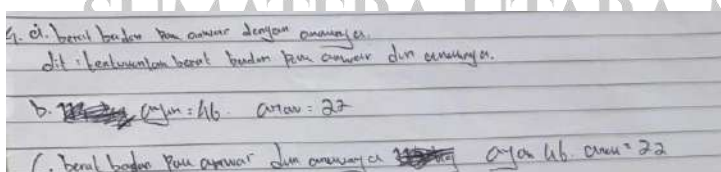 SUMATERA UTARA
4. a. berat badan pak anwar dengan anaknya.
dit : tentukanlah berat badan pak anwar dan anaknya.
b. ayah = 46. anak = 22
C. berat badan pak anwar dan anaknya ayah 46. anak = 22